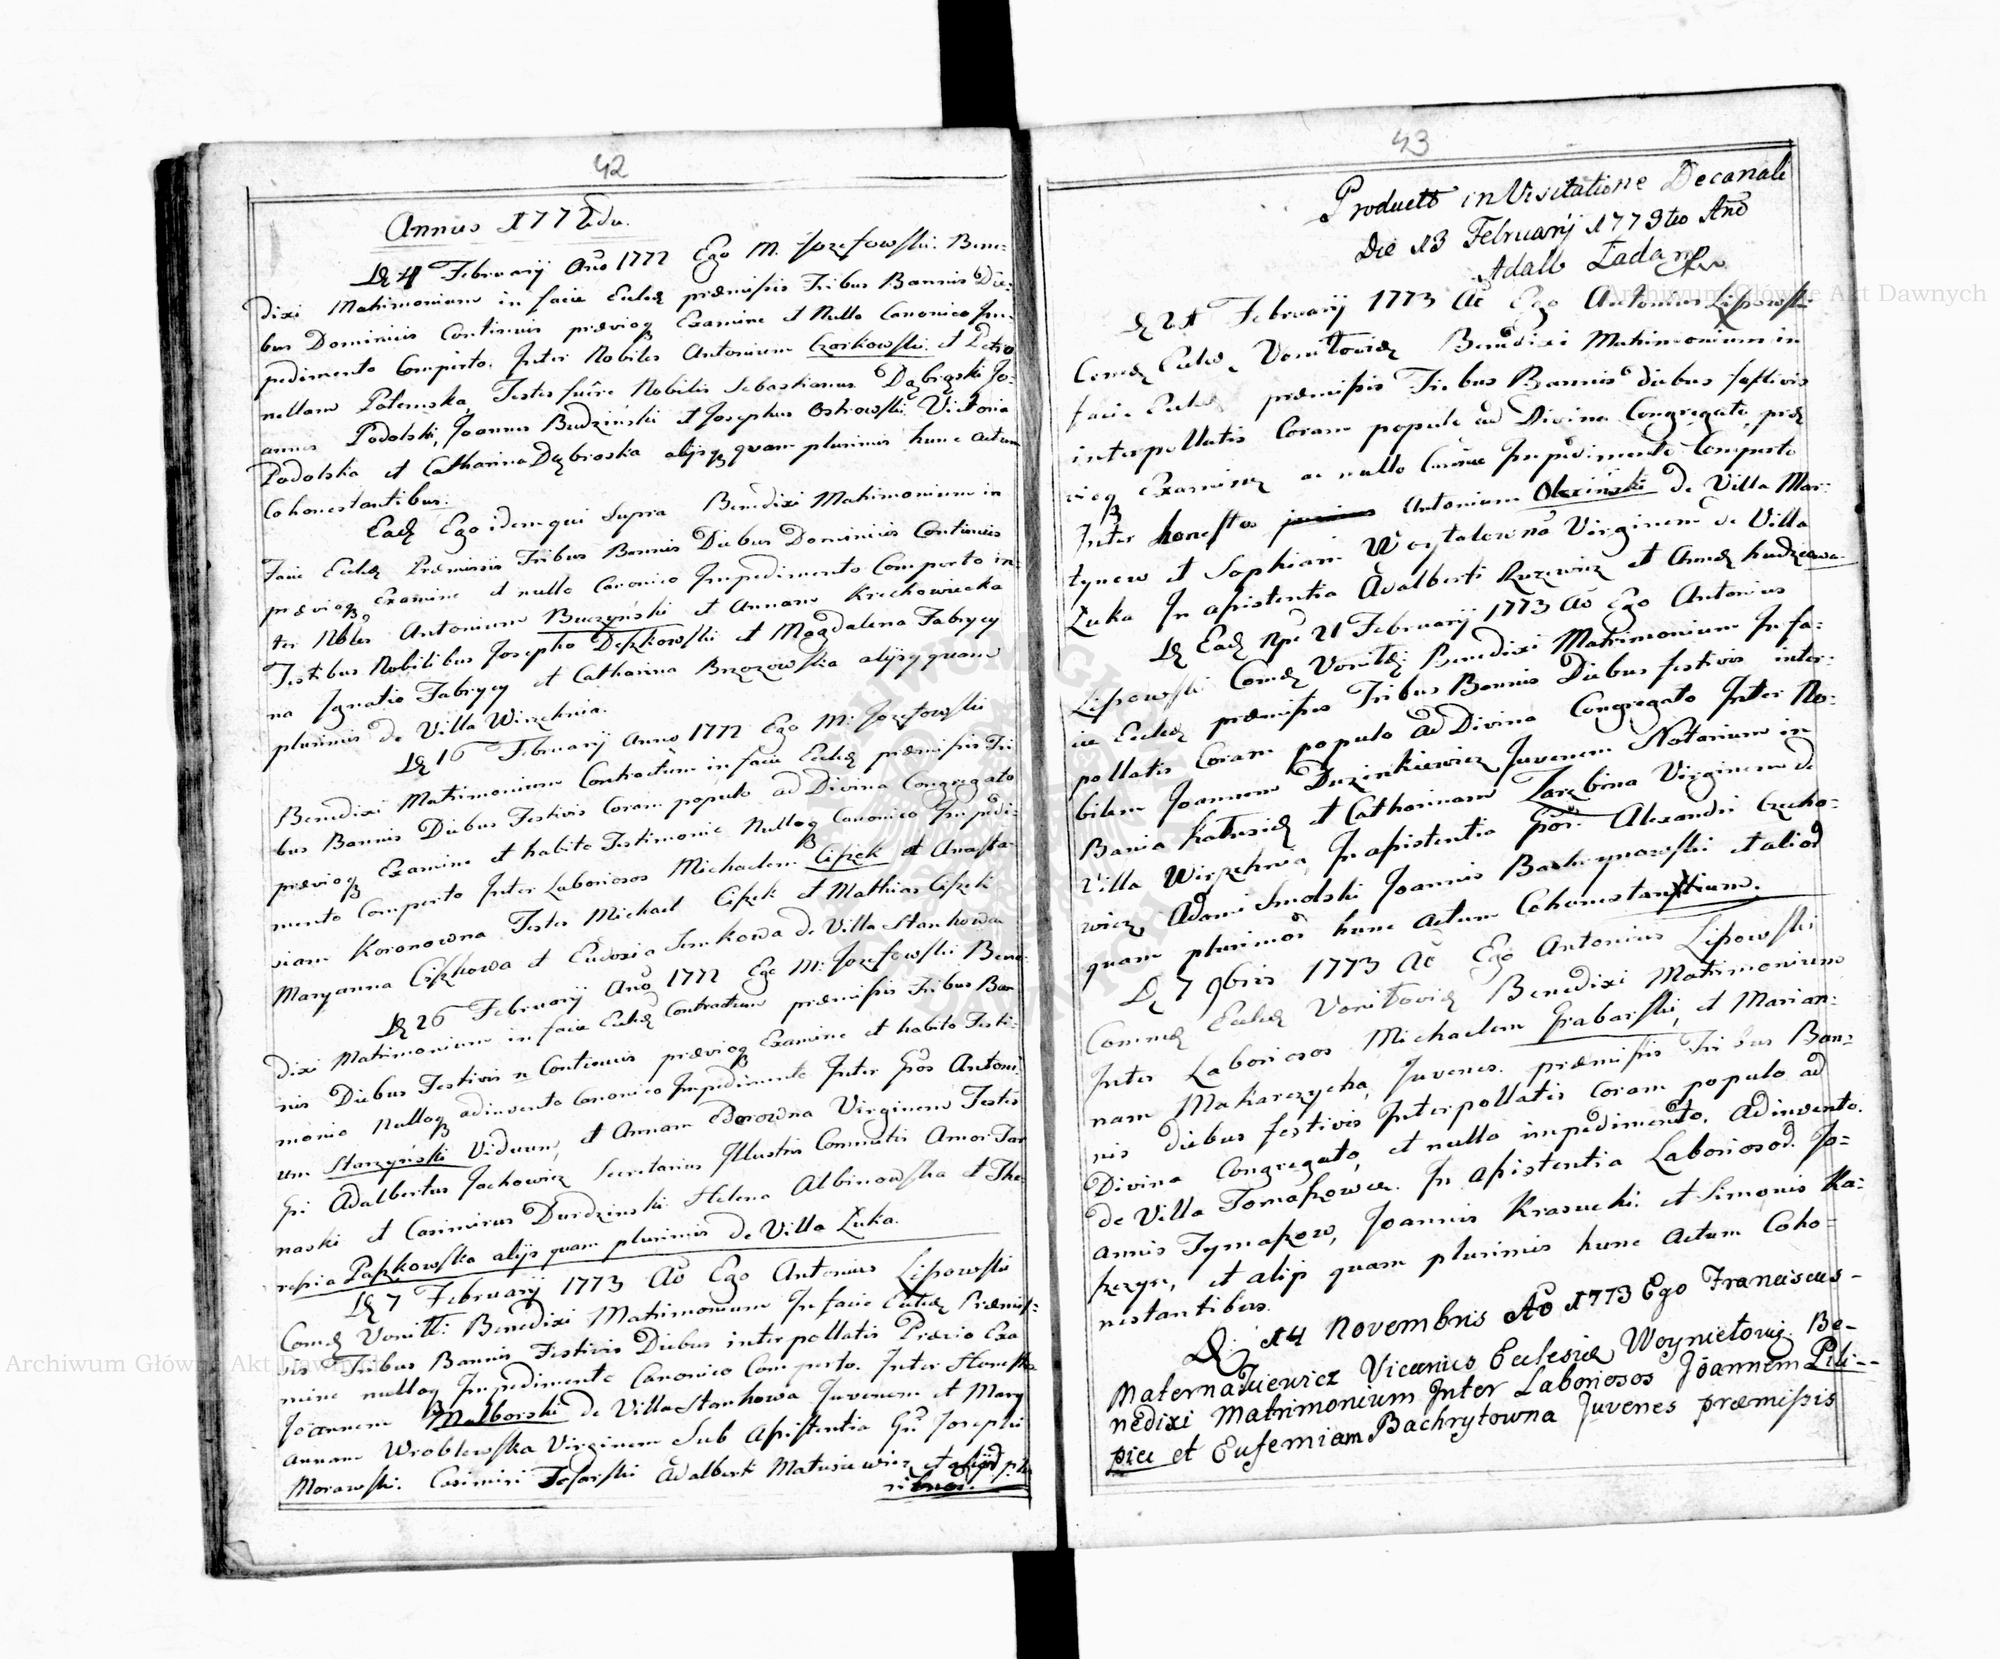 42
Annus 1772du.
D 4 Februarij Año 1772 Ego M. Jozefowski. Bene-
dixi Matrimonium in facie Ecclæ præmissis Tribus Bannis Die-
bus Dominicis Continuis præviog Examine et Nullo Canonico Im-
pedimento Comperto. Inter Nobiles Antonium Czarkowski. et Petro
nellam Potemska Testes fuêre Nobilis Sebastianus Dąbroski Jo-
annes Podolski, Joannes Budzinski et Josephus Ostrowski Victoria
Podolska et Catharina Dębroska alijsq quam plurimis hunc actum
Cohonestantibus.
Ead Ego idem qui supra Benedixi Matrimonium in
Facie Ecclæ Præmissis Tribus Bannis Diebus Dominicis Continuis
præviog Examine et nullo Canonico Impedimento Comperto in-
ter Nobles Antonium Buczynski et Annam Krechowiecka
Testibus Nobilibus Josepho Depkowski et Magdalena Fabrycy
na Ignatio Fabrycy et Catharina Brzozowska alijsq quam
plurimis de Villa Wirzchnia.
D 16 Februarij Anno 1772 Ego M: Jozefowski
Benedixi Matrimonium Contractum in facie Ecclæ præmissis Tri
bus Bannis Diebus Festivis Coram populo ad Divina Congregato
præviog Examine et habito Testimonio Nullog Canonico Impedi-
mento Comperto Inter Laboriosos Michaelem Ciszek et Anasta-
siam Koronowna Testes Michael Ciszek et Mathias Ciszek
Maryanna Ciszkowa et Eudoxia Semkowa de Villa Stankowa
D 26 Februarij Año 1772 Ego M: Jozefowski Bene-
dixi Matrimonium in facie Ecclæ Contractum præmissis Tribus Ban
nis Diebus Festivis n Continuis præviog Examine et habito Testi-
monio Nullog adinvento Canonico Impedimento Inter Gsos Antoni
um Starzynski Viduum, et Annam Borowna Virginem Testes
Gsi Adalbertus Jachowicz Secretarius Illustris Comitatis Amor Tar
naski et Casimirus Durdzinski Helena Albinowska et The-
resia Paszkowska alijs quam plurimis de Villa Łuka.
D 7 Februarij 1773 Aõ Ego Antonius Lipowski
Comd Vonitt: Benedixi Matrimonium In facie Ecclæ Præmis-
sis Tribus Bannis Festivis Diebus interpollatis Prævio Exa
mine nullog Impedimento Canonico Comperto. Inter Honestos
Joannem Malborski de Villa Stankowa Juvenem et Mary
annam Wroblewska Virginem Sub Assistentia Gsi Josephi
Morawski. Casimiri Adalberti Matusiewicz et aliord plu
43
Productō in Visitatione Decanali
Die 13 Februarij 1773tio Anō
Adalb Zadar
D 21 Februarij 1773 Aõ Ego Antonius Lipowski
Comd Ecclæ Benedixi Matrimonium in
facie Ecclæ præmissis Tribus Bannis diebus festivis
interpollatis Coram populo ad Divina Congregato, præ
viog Examine ac nullo Canonico Impedimento Comperto
Inter honestos Antonium Olexinski de Villa Mar-
tynow et Sophiam Woytalowna Virginem de Villa
Łuka In assistentia Adalberti Ruzewicz et Annæ
D Ead Npe 21 Februarij 1773 Aõ Ego Antonius
Lipowski Comd Benedixi Matrimonium In fa-
cie Ecclæ præmissis Tribus Bannis Diebus festivis inter-
pollatis Coram populo ad Divina Congregato Inter No-
bilem Joannem Duzinkiewicz Juvenem Notarium in
Bania Kałusiæ et Catharinam Zarebina Virginem de
Villa Wirzchnia, In assistentia Gsor. Alexandri Czecho-
wicz, Adami Smolski Joannis et aliod
quam plurimod hunc actum Cohonestantium.
D 7 9bris 1773 Aõ Ego Antonius Lipowski
Commd Ecclæ Benedixi Matrimonium
Inter Laboriosos Michaelem Grabarski, et Marian-
nam Makarzycha, Juvenes. præmissis Tribus Ban-
nis diebus festivis Interpollatis Coram populo ad
Divina Congregato, et nullo impedimento. Adinvento.
de Villa Tomaszowce. In assistentia Laboriosod. Jo-
annis Tymaszow, Joannis Krasucki: et Simonis Ka-
szczyn, et alijs quam plurimis hunc Actum Coho-
nestantibus.
D: 14 Novembris Aõ 1773 Ego Franciscus
Maternatkiewicz Vicarius Eccelesiæ Be-
nedixi Matrimonium Inter Laboriosos Joannem Pili-
pice et Eufemiam Bachrytowna Juvenes præmissis
Archiwum Główne Akt Dawnych
Archiwum Główne Akt Dawnych